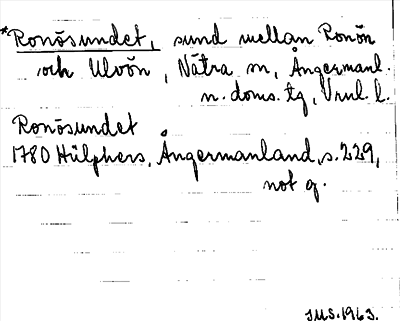 *Ronösundet, sund mellan Ronön
och Ulvön, Nätra sn, Ångermanl.
n. doms. tg, Vnl. l.
Ronösundet
1780 Hülphers, Ångermanland, s. 229,
not g.
JMS. 1963.